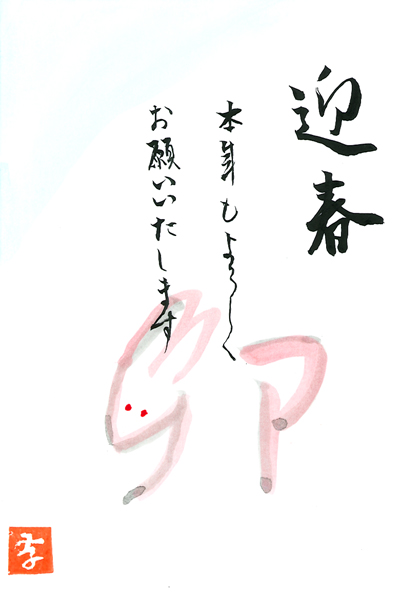 迎春
本年もよろしく
お願いいたします
卯